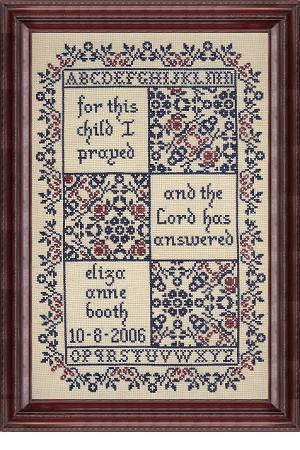 ABCDEFGHIJKLMN
for this
child I
prayed
and the
Lord has
answered
eliza
anne
booth
10-8-2006
OPQRSTUVWXYZ